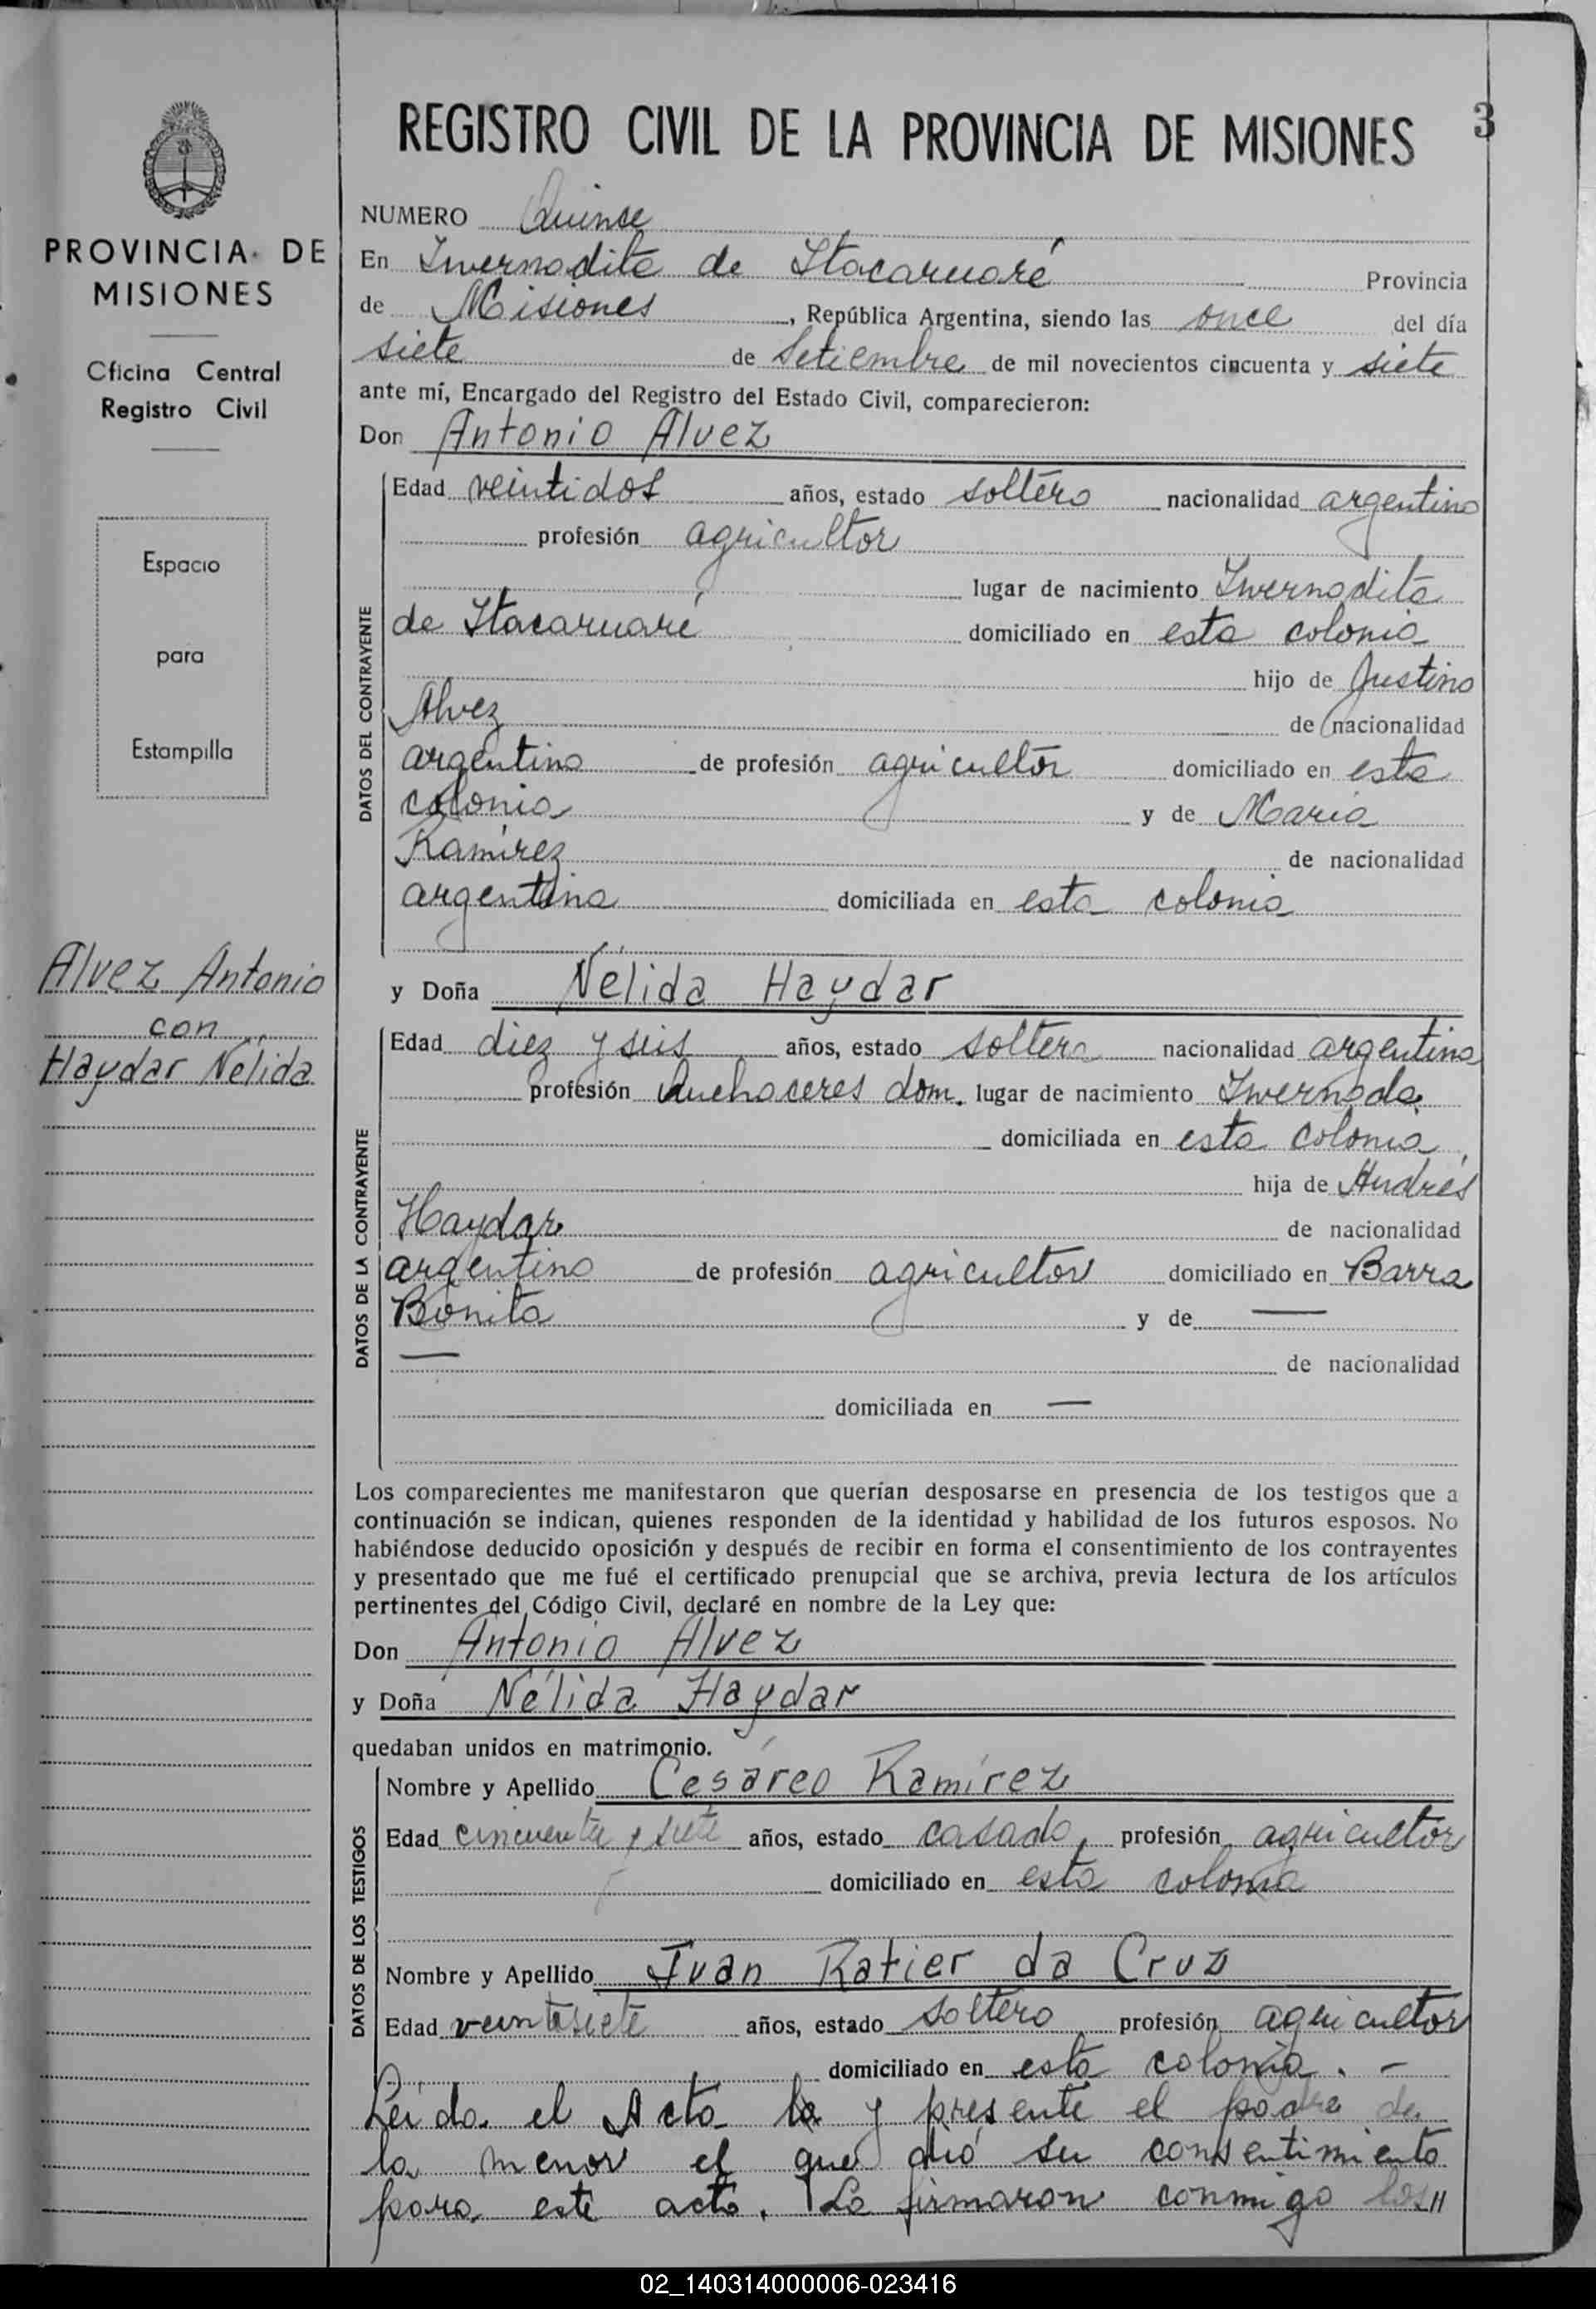 3
REGISTRO CIVIL DE LA PROVINCIA DE MISIONES
PROVINCIA DE
MISIONES
Oficina Central
Registro Civil
Espacio
para
Estampilla
Alvez Antonio
con
Haydar Nélida
NUMERO Quinse
En Invernadita de Itacaruaré Provincia
de Misiones, República Argentina, siendo las once del día
siete de Setiembre de mil novecientos cincuenta y siete
ante mí, Encargado del Registro del Estado Civil, comparecieron:
Don Antonio Alvez
DATOS DEL CONTRAYENTE
Edad veintidos años, estado soltero nacionalidad argentino
profesión agricultor
lugar de nacimiento Invernadita
de Itacaruaré domiciliado en esta colonia
hijo de Justino
Alvez de nacionalidad
argentino de profesión agricultor domiciliado en esta
colonia y de Maria
Ramírez de nacionalidad
argentina domiciliada en esta colonia
y Doña Nélida Haydar
DATOS DE LA CONTRAYENTE
Edad diez y seis años, estado soltera nacionalidad argentina
profesión Quehaceres dom. lugar de nacimiento Invernada
domiciliada en esta colonia,
hija de Andrés
Haydar de nacionalidad
argentino de profesión agricultor domiciliado en Barra
Bonita y de —
— de nacionalidad
domiciliada en —
Los comparecientes me manifestaron que querían desposarse en presencia de los testigos que a
continuación se indican, quienes responden de la identidad y habilidad de los futuros esposos. No
habiéndose deducido oposición y después de recibir en forma el consentimiento de los contrayentes
y presentado que me fué el certificado prenupcial que se archiva, previa lectura de los artículos
pertinentes del Código Civil, declaré en nombre de la Ley que:
Don Antonio Alvez
y Doña Nélida Haydar
quedaban unidos en matrimonio.
DATOS DE LOS TESTIGOS
Nombre y Apellido Cesáreo Ramírez
Edad cincuenta y siete años, estado casado, profesión agricultor
domiciliado en esta colonia
Nombre y Apellido Juan Ratier da Cruz
Edad veintisiete años, estado soltero profesión agricultor
domiciliado en esta colonia. -
Leida el Acta la y presente el padre de
la menor el que dió su consentimiento
para este acto. La firmaron conmigo los"
02_140314000006-023416